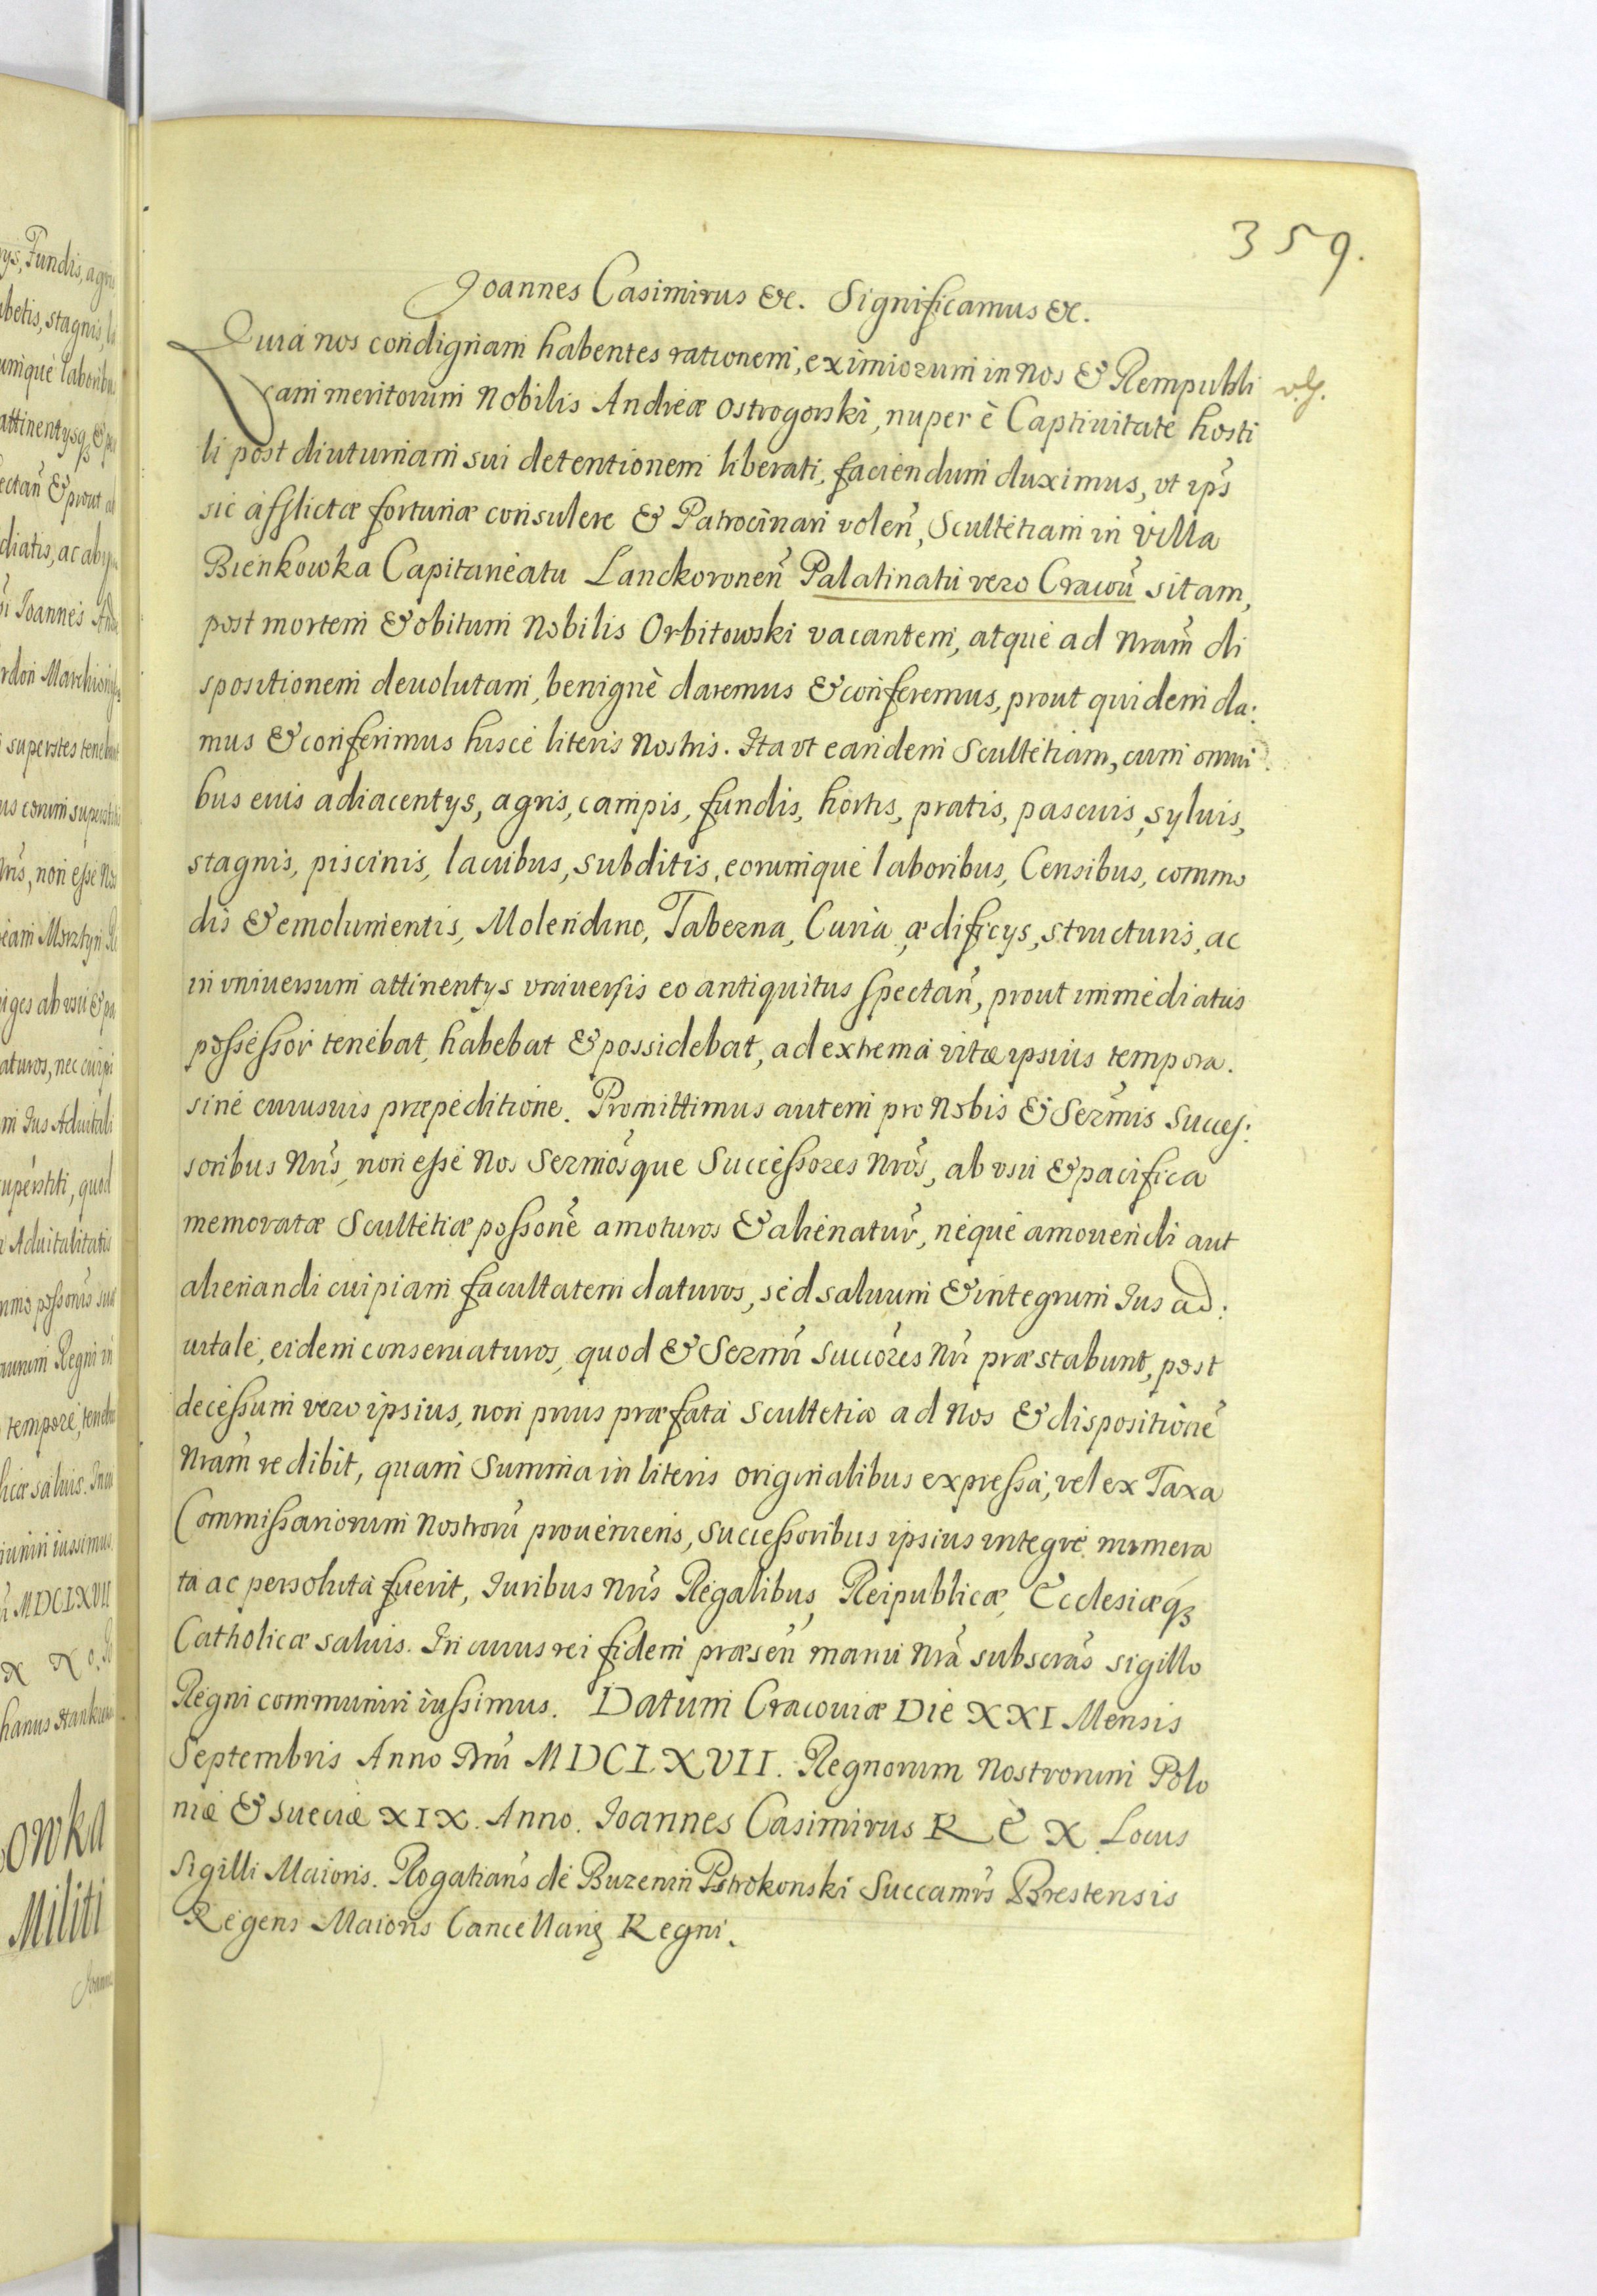 359.
Joannes Casimirus &c. Significamus &c.
Quia nos condignam habentes rationem, eximiorum in nos & Rempubli
cam meritorum Nobilis Andreæ Ostrogorski, nuper è Captiuitate hosti
li post diuturnam sui detentionem liberati, faciendum duximus, vt ips̃
sic afflictæ fortunæ consulere & Patrocinari voleñ, Scultetiam in Villa
Bienkowka Capitaneatu Lanckoroneñ Palatinatu vero Cracoũ sitam,
post mortem & obitum Nobilis Orbitowski vacantem, atque ad Nram̃ di
spositionem deuolutam, benignè daremus & conferemus, prout quidem da:
mus & conferimus hisce literis Nostris. Ita vt eandem Scultetiam, cum omni
bus euis adiacentys, agris, campis, fundis, hortis, pratis, pascuis, syluis,
stagnis, piscinis, lacubus, subditis, eorumque laboribus, Censibus, commo
dis & emolumentis, Molendino, Taberna, Curia, ædificys, structuris, ac
in vniuersum attinentys vniuersis eo antiquitus spectañ, prout immediatus
possessor tenebat, habebat & possidebat, ad extrema vitæ ipsius tempora.
sine cuiusuis præpeditione. Promittimus autem pro Nobis & Serm̃is Succes:
soribus Nr̃is, non esse Nos Serm̃osque Successores Nr̃os, ab vsu & pacifica
memoratæ Scultetiæ possoñe amoturos & alienatur̃, neque amouendi aut
alienandi cuipiam facultatem daturos, sed saluum & integrum Ius ad:
uitale, eidem conseruaturos, quod & Serm̃i Succõres Nr̃i præstabunt, post
decessum vero ipsius, non prius præfata Scultetia ad Nos & dispositionẽ
Nram̃ redibit, quam Summa in literis originalibus expressa, vel ex Taxa
Commissariorum Nostrorũ proueniens, Successoribus ipsius integre numera
ta ac persoluta fuerit, Iuribus Nr̃is Regalibus, Reipublicæ, Ecclesiæq3
Catholicæ saluis. In cuius rei fidem præseñ manu Nrã subscrãs sigillo
Regni communiri iussimus. Datum Cracouiæ Die XXI Mensis
Septembris Anno Dnĩ MDCLXVII. Regnorum Nostrorum Polo
niæ & Sueciæ XIX. Anno. Joannes Casimirus R E X. Locus
Sigilli Maioris. Rogatianũs de Buzenin Pstrokonski Succamr̃s Brestensis
Regens Maioris Cancellariæ Regni.